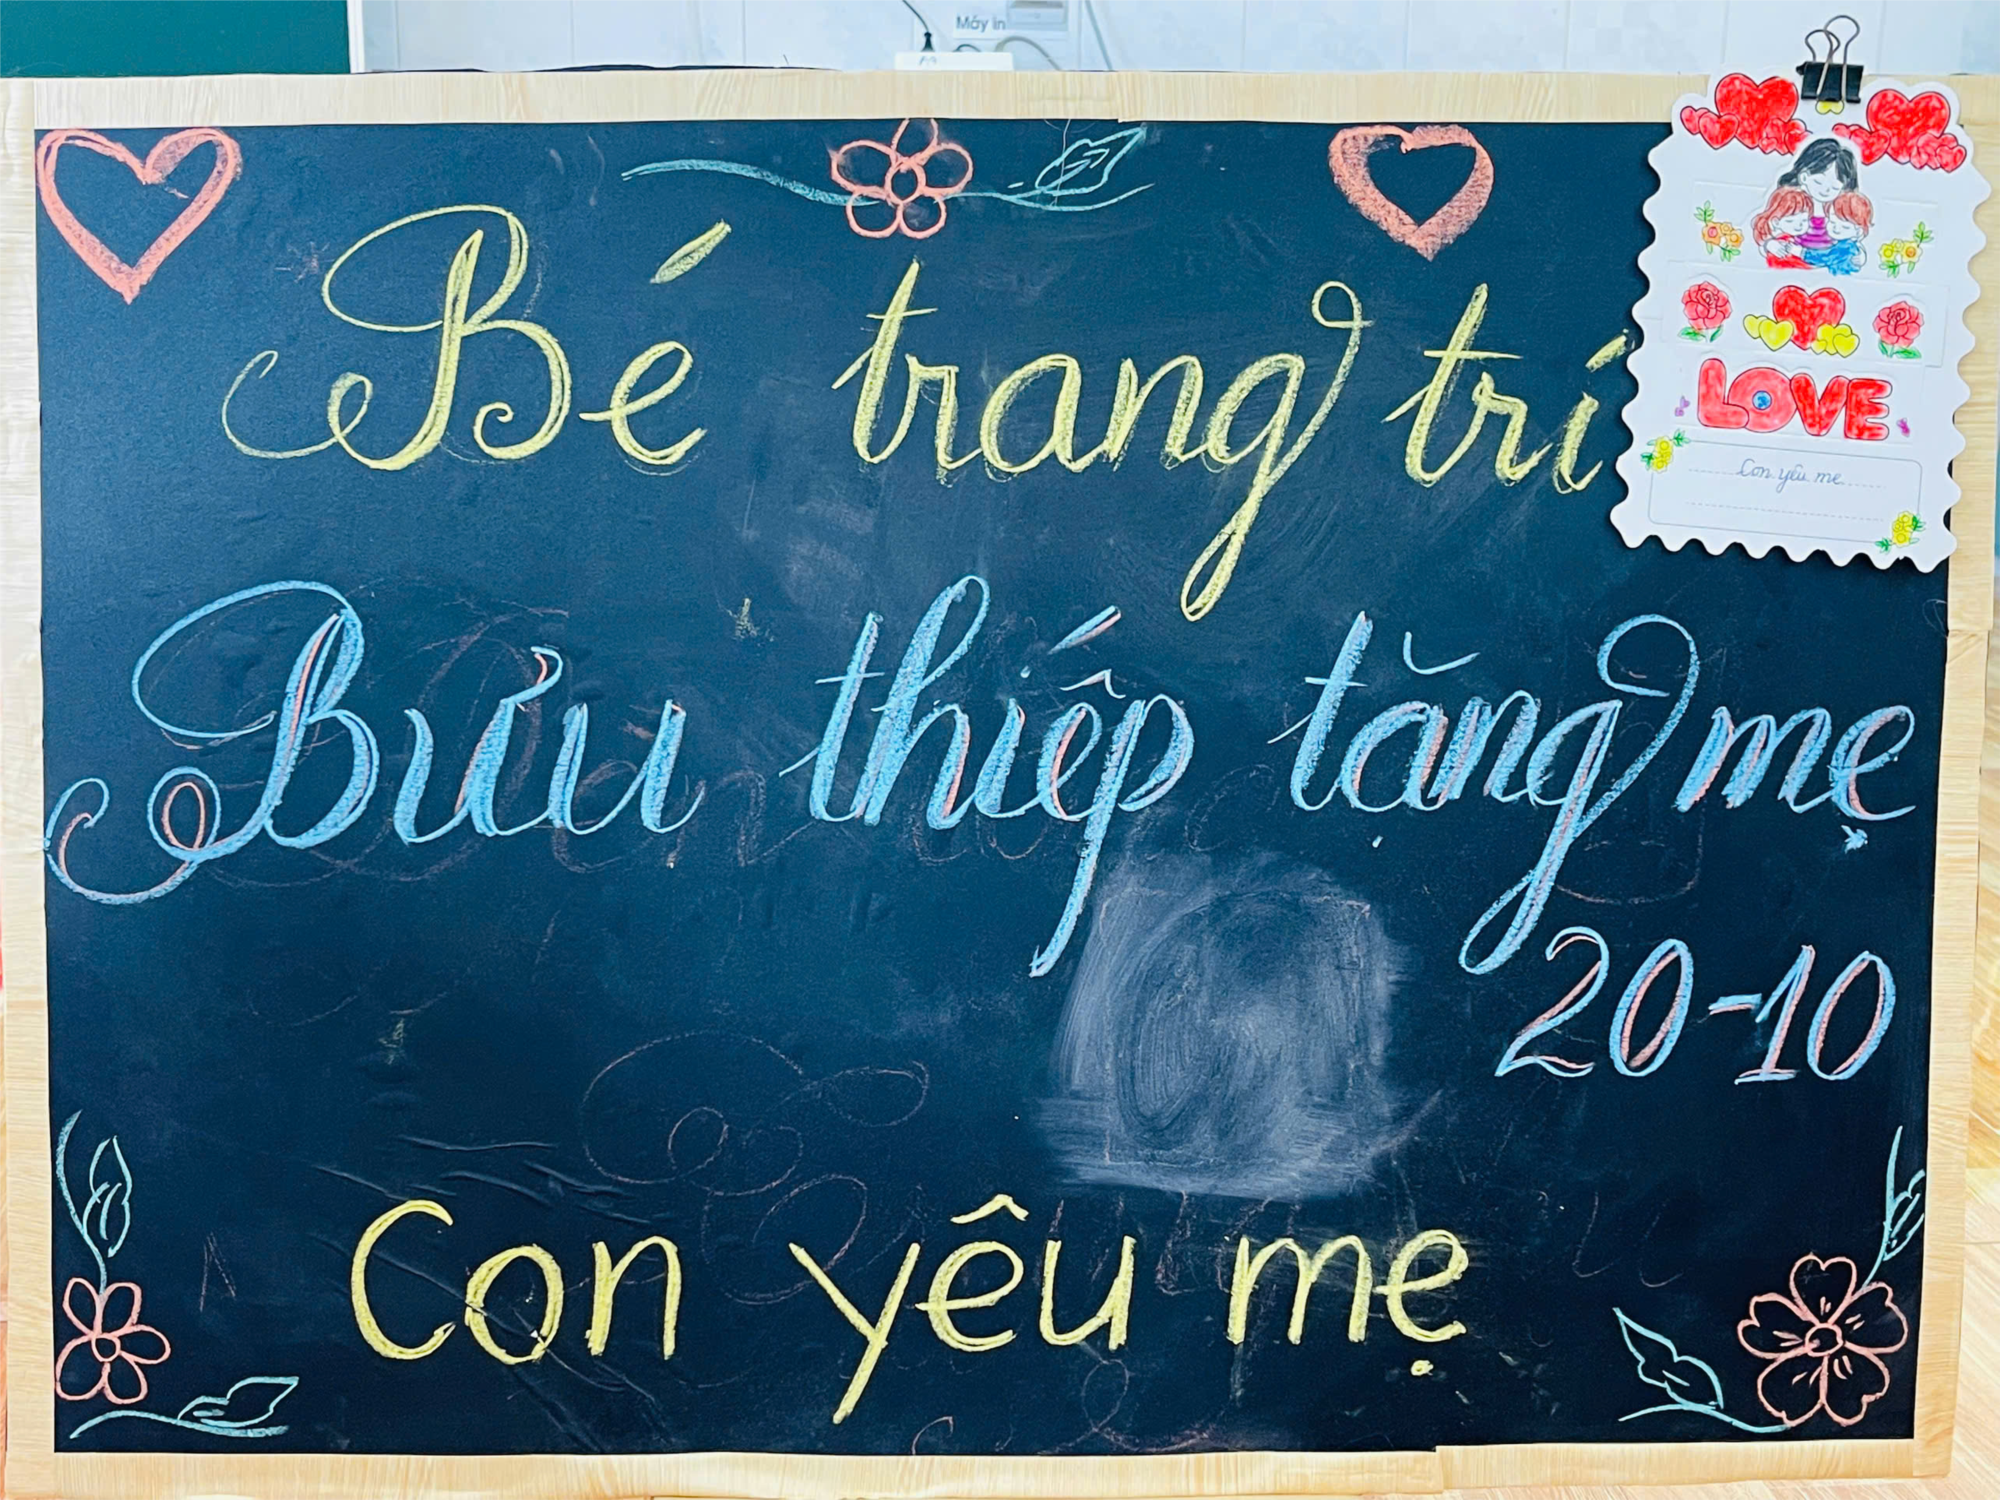 Máy in
Bé trang trí
LOVE
Con yêu mẹ
Bưu thiếp tặng mẹ
20-10
Con yêu mẹ